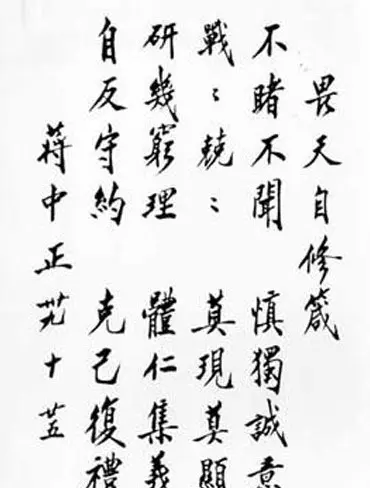 畏天自修箴
不睹不聞 慎獨誠意
戰〻兢〻 莫現莫顯
研幾窮理 體仁集義
自反守約 克己復禮
蔣中正 卅九 十 廿五